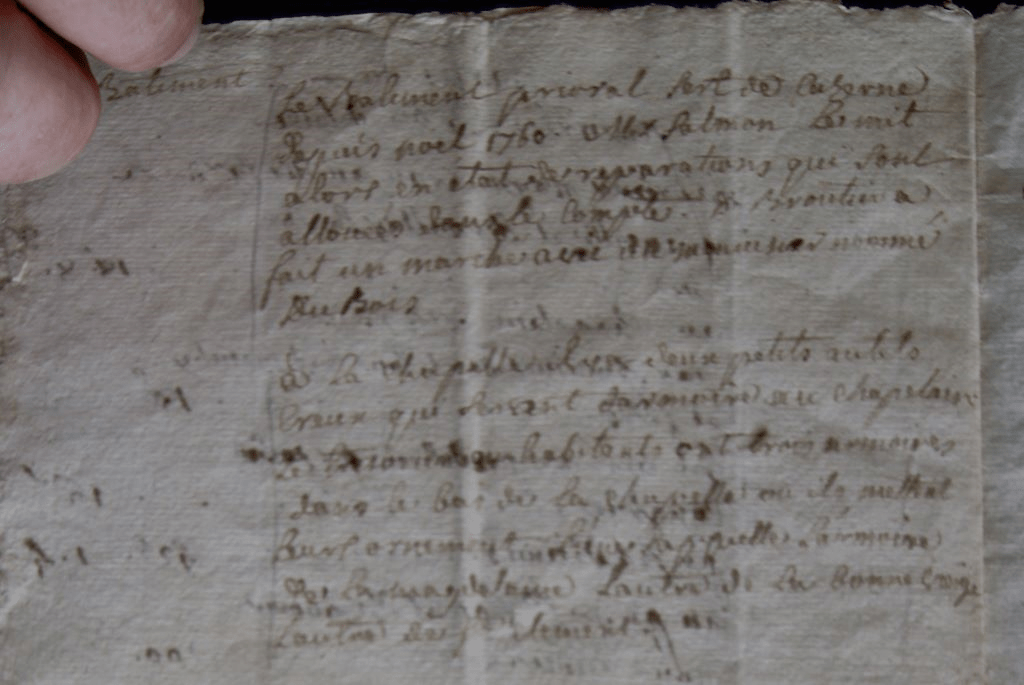 Batiment
Le Batiment prioral sert de Cazerne
depuis noel 1760. Mr Salmon Le mit
alors en etat de reparations qui sont
allouées dans le Compte. Broutin a
fait un marché avec un nommé
Du Bois
a La Chapelle il y a deux petits autels
Creux qui servent d'armoire au Chapelain
Les habitents ont trois armoires
dans le bas de La Chapelle ou ils mettent
Leurs ornement L'armoire
de La magdelaine Lautre de La bonne Vierge
Lautre de St Clement